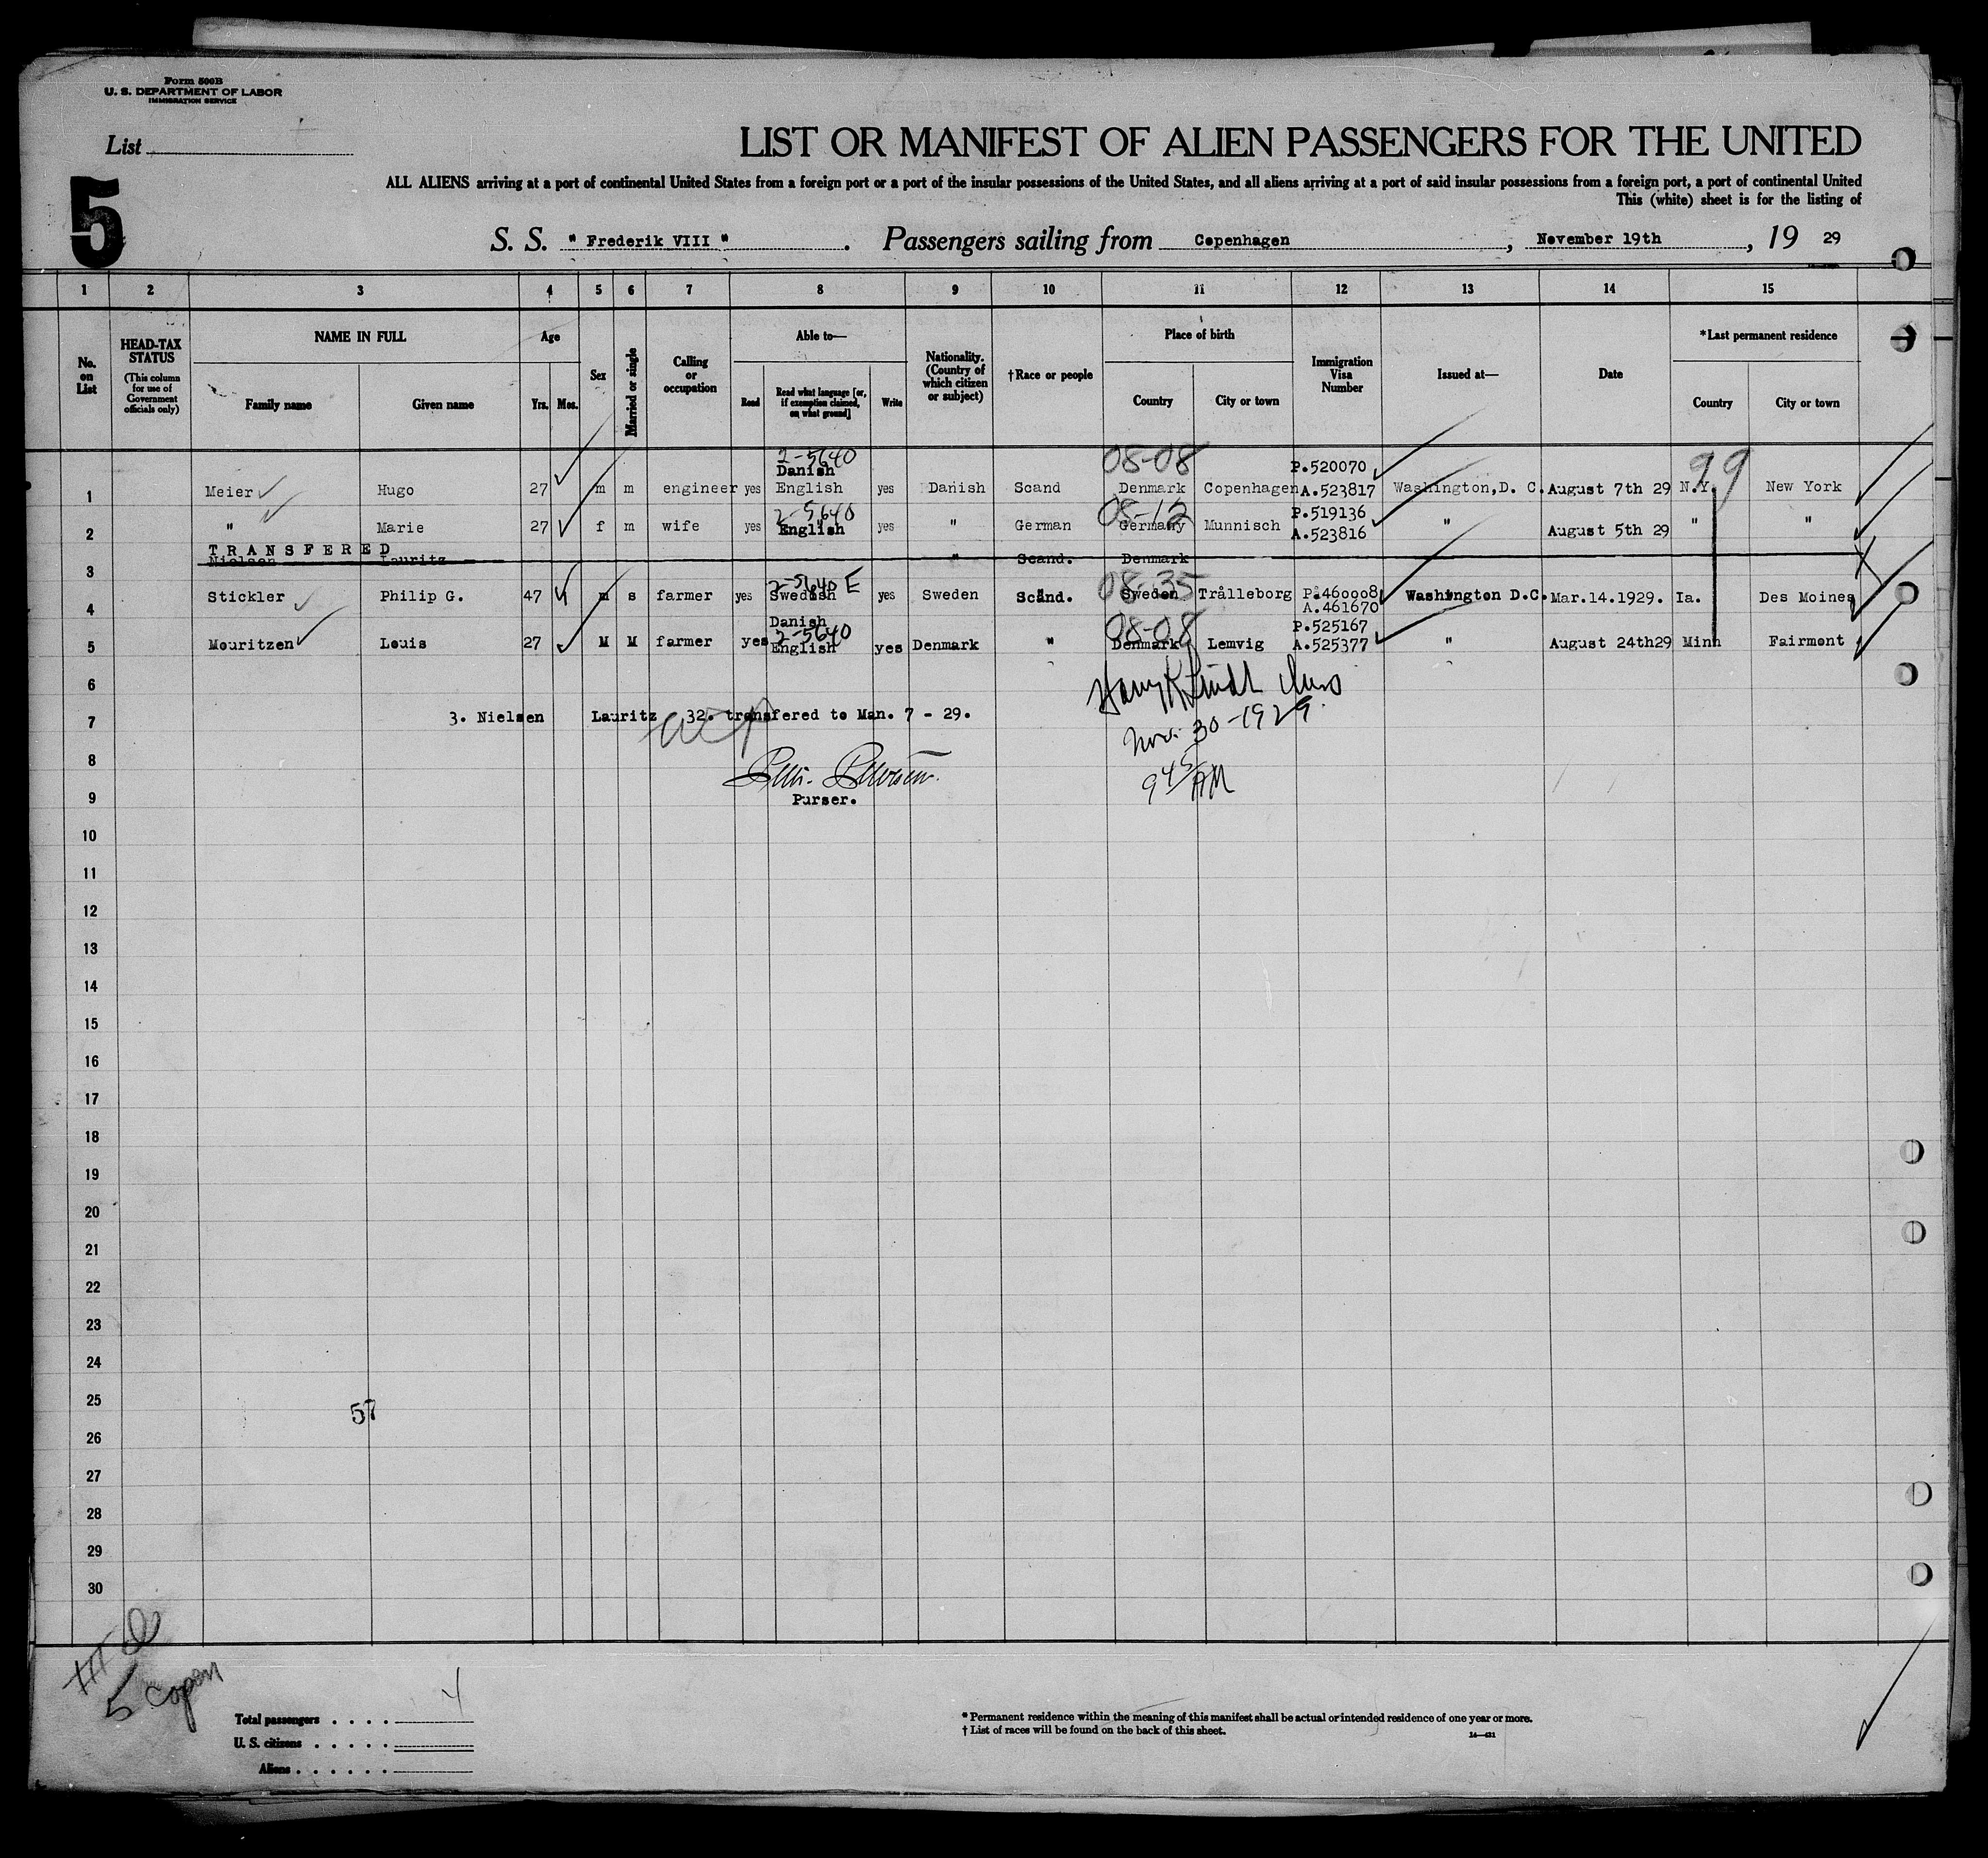 Form 500B
U. S. DEPARTMENT OF LABOR
IMMIGRATION SERVICE
List
5
LIST OR MANIFEST OF ALIEN PASSENGERS FOR THE UNITED
ALL ALIENS arriving at a port of continental United States from a foreign port or a port of the insular possessions of the United States, and all aliens arriving at a port of said insular possessions from a foreign port, a port of continental United
This (white) sheet is for the listing of
S. S. " Frederik VIII " . Passengers sailing from Copenhagen , November 19th , 19 29
1 2 3 4 5 6 7 8 9 10 11 12 13 14 15
No. on List
HEAD-TAX STATUS
(This column for use of Government officials only)
NAME IN FULL
Family name
Given name
Age
Yrs. Mos.
Sex
Married or single
Calling or occupation
Able to—
Read
Read what language [or, if exemption claimed, on what ground]
Write
Nationality. (Country of which citizen or subject)
†Race or people
Place of birth
Country
City or town
Immigration Visa Number
Issued at—
Date
*Last permanent residence
Country
City or town
2-5640 08-08 99
Danish P.520070
1 Meier Hugo 27 m m engineer yes English yes Danish Scand Denmark Copenhagen A.523817 Washington,D. C. August 7th 29 N.Y. New York
2-5640 08-12 P.519136
2 " Marie 27 f m wife yes English yes " German Germany Munnisch A.523816 " August 5th 29 " "
TRANSFERED
3 Nielsen Lauritz " Scand. Denmark
2-5640 E 08-35
4 Stickler Philip G. 47 m s farmer yes Swedish yes Sweden Scand. Sweden Trålleborg P.460008 Washington D.C. Mar.14.1929. Ia. Des Moines
A.461670
Danish 2-5640 08-08 P.525167
5 Mouritzen Louis 27 M M farmer yes English yes Denmark " Denmark Lemvig A.525377 " August 24th29 Minn Fairmont
6
7 3. Nielsen Lauritz 32. transfered to Man. 7 - 29.
Nov. 30-1929.
8
9 45 AM
9 Purser.
10
11
12
13
14
15
16
17
18
19
20
21
22
23
24
25
57
26
27
28
29
30
5 Copen
Total passengers . . . . 4
U. S. citizens . . . . .
Aliens . . . . . .
* Permanent residence within the meaning of this manifest shall be actual or intended residence of one year or more.
† List of races will be found on the back of this sheet.
14—431